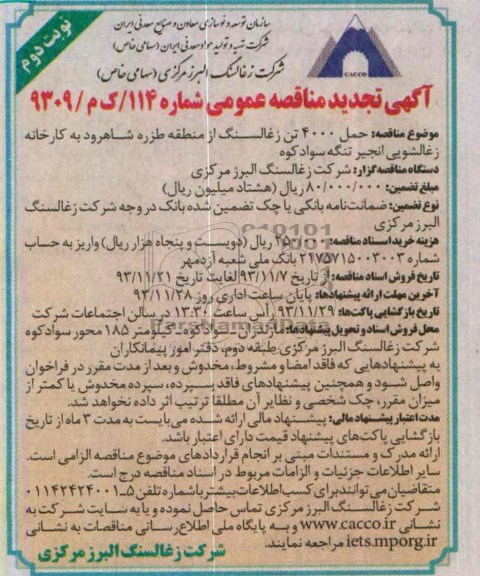 نوبت دوم
سازمان توسعه و نوسازی معادن و صنایع معدنی ایران
شرکت تهیه و تولید مواد معدنی ایران (سهامی خاص)
شرکت زغالسنگ البرز مرکزی (سهامی خاص)
CACCO
آگهی تجدید مناقصه عمومی شماره ۱۱۴/ک م/۹۳۰۹
موضوع مناقصه: حمل ۴۰۰۰ تن زغالسنگ از منطقه طزره شاهرود به کارخانه
زغالشویی انجیر تنگه سوادکوه
دستگاه مناقصه گزار: شرکت زغالسنگ البرز مرکزی
مبلغ تضمین: ۸۰/۰۰۰/۰۰۰ ریال (هشتاد میلیون ریال)
نوع تضمین: ضمانت‌نامه بانکی یا چک تضمین شده بانک در وجه شرکت زغالسنگ
البرز مرکزی
هزینه خرید اسناد مناقصه: ۲۵۰/۰۰۰ ریال (دویست و پنجاه هزار ریال) واریز به حساب
شماره ۲۱۷۵۷۱۵۰۰۳۰۰۳ بانک ملی شعبه آزادمهر
تاریخ فروش اسناد مناقصه: از تاریخ ۹۳/۱۱/۷ لغایت تاریخ ۹۳/۱۱/۲۱
آخرین مهلت ارائه پیشنهادها: پایان ساعت اداری روز ۹۳/۱۱/۲۸
تاریخ بازگشایی پاکت‌ها: ۹۳/۱۱/۲۹ رأس ساعت ۱۳:۳۰ در سالن اجتماعات شرکت
محل فروش اسناد و تحویل پیشنهادها: مازندران_سوادکوه_کیلومتر ۱۸۵ محور سوادکوه
شرکت زغالسنگ البرز مرکزی طبقه دوم، دفتر امور پیمانکاران
به پیشنهادهایی که فاقد امضا و مشروط، مخدوش و بعد از مدت مقرر در فراخوان
واصل شود و همچنین پیشنهادهای فاقد سپرده، سپرده مخدوش یا کمتر از
میزان مقرر، چک شخصی و نظایر آن مطلقا ترتیب اثر داده نخواهد شد.
مدت اعتبار پیشنهاد مالی: پیشنهاد مالی ارائه شده می‌بایست به مدت ۳ ماه از تاریخ
بازگشایی پاکت‌های پیشنهاد قیمت دارای اعتبار باشد.
ارائه مدرک و مستندات مبنی بر انجام قراردادهای موضوع مناقصه الزامی است.
سایر اطلاعات جزئیات و الزامات مربوط در اسناد مناقصه درج است.
متقاضیان می‌توانند برای کسب اطلاعات بیشتر با شماره تلفن ۵_۰۱۱۴۲۴۲۴۰۰۱
شرکت زغالسنگ البرز مرکزی تماس حاصل نموده و یا به سایت شرکت به
نشانی www.cacco.ir و به پایگاه ملی اطلاع رسانی مناقصات به نشانی
iets.mporg.ir مراجعه نمایند.
شرکت زغالسنگ البرز مرکزی